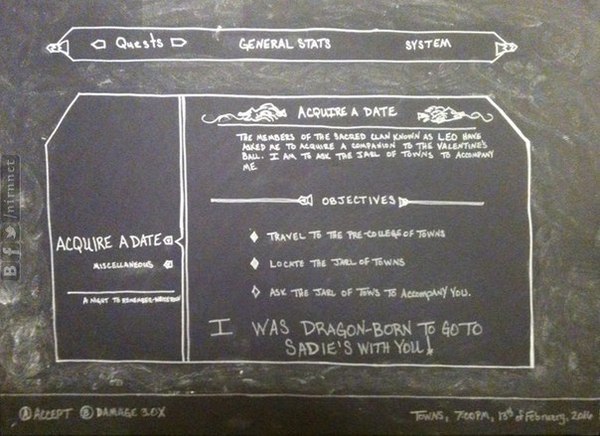 Quests
GENERAL STATS
SYSTEM
ACQUIRE A DATE
THE MEMBERS OF THE SACRED CLAN KNOWN AS LEO HAVE
ASKED ME TO ACQUIRE A COMPANION TO THE VALENTINE'S
BALL. I AM TO ASK THE JARL OF TOWNS TO ACCOMPANY
ME
OBJECTIVES
ACQUIRE A DATE
MISCELLANEOUS
A NIGHT TO REMEMBER
TRAVEL TO THE PRE-COLLEGE OF TOWNS
LOCATE THE JARL OF TOWNS
ASK THE JARL OF TOWNS TO ACCOMPANY YOU.
I WAS DRAGON-BORN TO GO TO
SADIE'S WITH YOU!
A ACCEPT B DAMAGE 3.0X
TOWNS, 7:00PM, 13th of February, 2016
B f /nirnnct